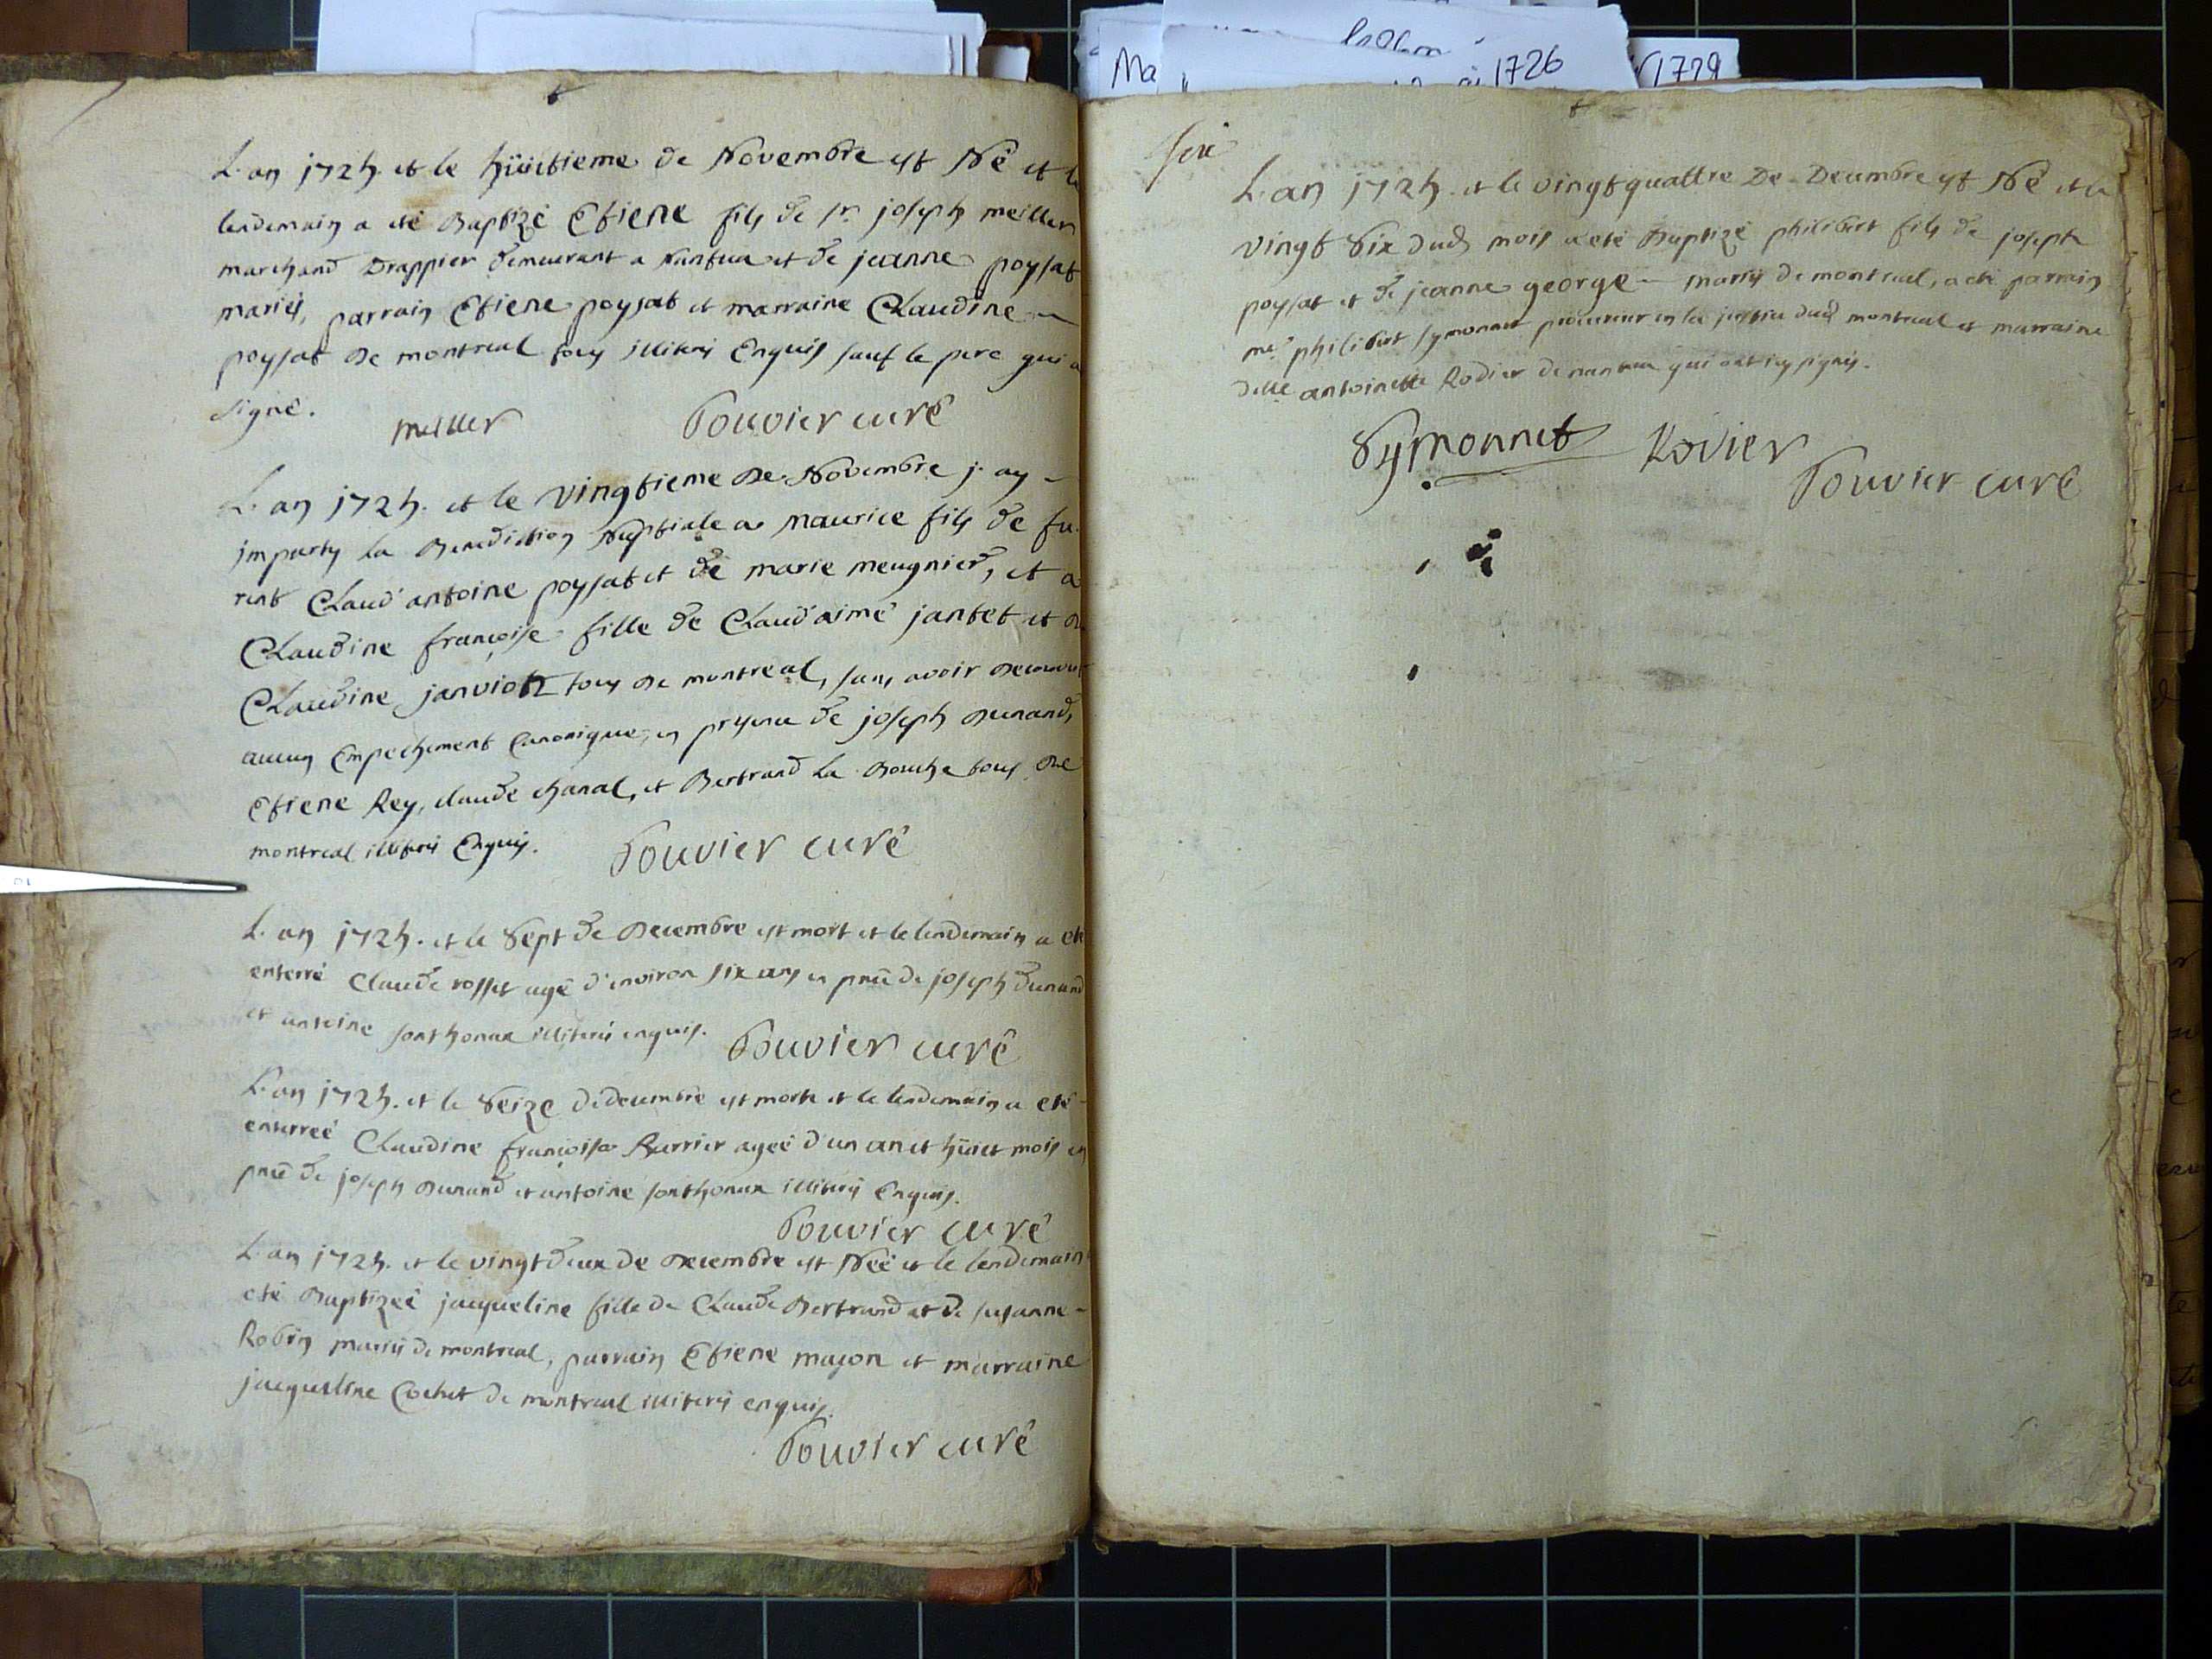 L'an 1724. et le hüictieme de Novembre est Né et le
lendemain a eté Baptizé Etiene fils de sr. joseph meiller
marchand Drappier demeurant a Nantua et de jeanne poysat
mariés, parrain Etiene poysat et marraine Claudine
poysat de montreal tous illiterés Enquis sauf le pere qui a
signé.
meiller Bouvier curé
L'an 1724. et le vingtieme de Novembre j'ay
imparty la Benediction Nuptiale a maurice fils de fu
rent Claud'antoine poysat et de marie meugnier, et a
Claudine françoise fille de Claud'aimé jantet et de
Claudine janviott tous de montreal, sans avoir decouvert
aucun Empechement Canonique, en presence de joseph dunand,
Etiene Rey, claude chanal, et Bertrand La Bouche tous de
montreal illiterés Enquis. Bouvier curé
L'an 1724. et le Sept de Decembre est mort et le lendemain a eté
enterré Claude rosset agé d'environ six ans en pnce de joseph dunand
et antoine sonthonax illiterés enquis. Bouvier curé
L'an 1724. et le Seize de decembre est morte et le lendemain a eté
enterreé Claudine françoise Barrier ageé d'un an et hüict mois en
pnce de joseph dunand et antoine sonthonax illiterés Enquis.
Bouvier curé
L'an 1724. et le vingt deux de Decembre est Neé et le lendemain
eté Baptizeé jacqueline fille de Claude Bertrand et de susanne
Robin mariés de montreal, parrain Etiene majon et marraine
jacqueline Cochet de montreal illiterés enquis.
Bouvier curé
Ma
1726
1729
six
L'an 1724. et le vingt quattre De Decembre est Né et le
vingt Six dud mois a eté Baptizé philibert fils de joseph
poysat et de jeanne george mariés de montreal, a eté parrain
me. philibert symonnet procureur en la justice dud montreal et marraine
delle antoinette Rodier de nantua qui ont icy signés.
Symonnet Rodier
Bouvier curé